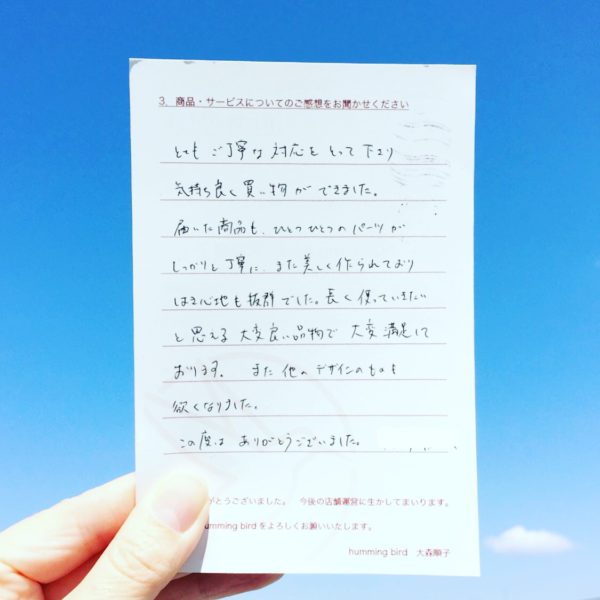 3. 商品・サービスについてのご感想をお聞かせください
とても ご丁寧な 対応を とって 下さり
気持ち良く 買い物が できました。
届いた商品も、ひとつひとつの パーツが
しっかりと 丁寧に、また 美しく 作られており
はき心地も 抜群でした。長く 使っていきたい
と 思える 大変良い品物で 大変 満足して
おります。 また 他の デザインのものも
欲しくなりました。
この度は ありがとうございました。
がとうございました。 今後の店舗運営に生かしてまいります。
umming birdをよろしくお願いいたします。
humming bird 大森順子